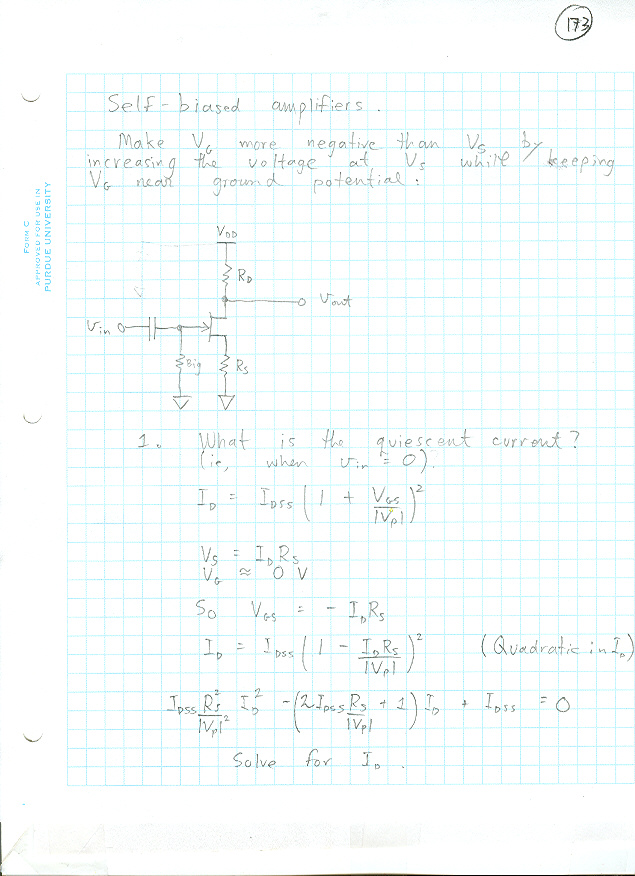 173
FORM C
APPROVED FOR USE IN
PURDUE UNIVERSITY
Self-biased amplifiers.
Make V_G more negative than V_S by
increasing the voltage at V_S while keeping
V_G near ground potential:
V_DD
R_D
v_out
v_in
Big
R_S
1. What is the quiescent current?
(ie, when v_in = 0).
I_D = I_DSS (1 + V_GS/|V_P|)^2
V_S = I_D R_S
V_G ≈ 0 V
So V_GS = - I_D R_S
I_D = I_DSS (1 - I_D R_S/|V_P|)^2 (Quadratic in I_D)
I_DSS R_S^2/|V_P|^2 I_D^2 - (2 I_DSS R_S/|V_P| + 1) I_D + I_DSS = 0
Solve for I_D.